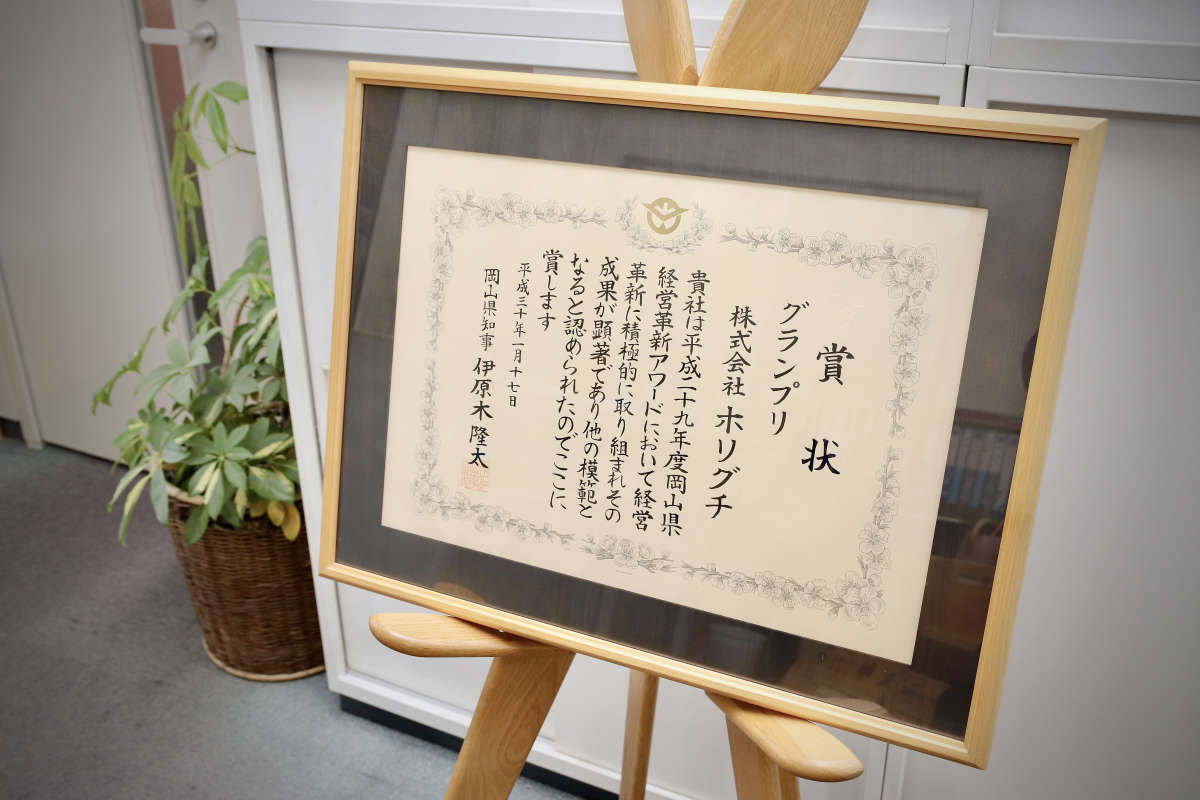 賞状
グランプリ
株式会社 ホリグチ
貴社は平成二十九年度岡山県
経営革新アワードにおいて経営
革新に積極的に取り組まれその
成果が顕著であり他の模範と
なると認められたのでここに
賞します
平成三十年一月十七日
岡山県知事 伊原木隆太